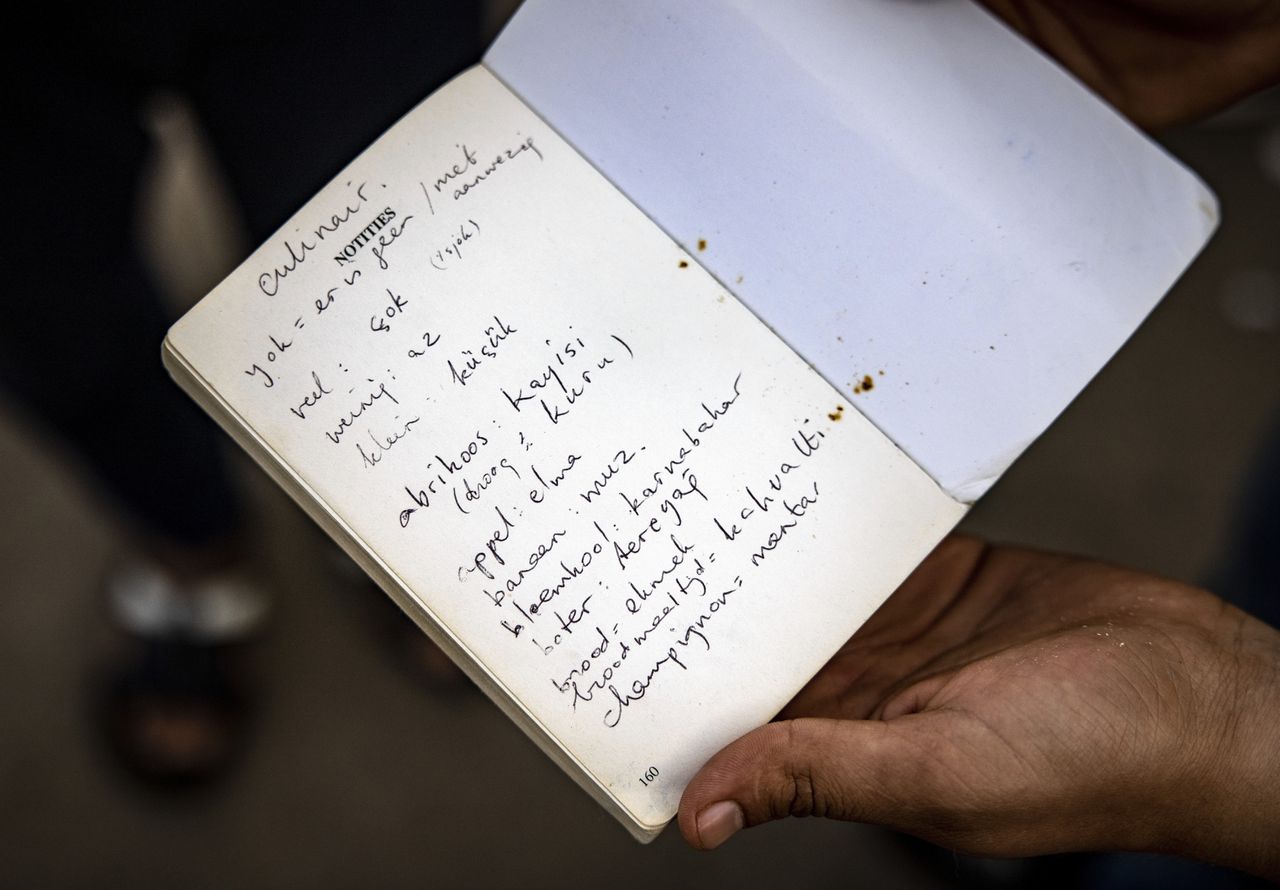 culinair.
NOTITIES
yok = er is geen / mét aanwezig
veel : çok (tsjok)
weinig : az
klein : küçük
abrikoos : kayisi
(droog : kuru)
appel : elma
banaan : muz.
bloemkool : karnabahar
boter : tereyağ
brood = ekmek
broodmaaltijd = kahvalti.
champignon = mantar
160